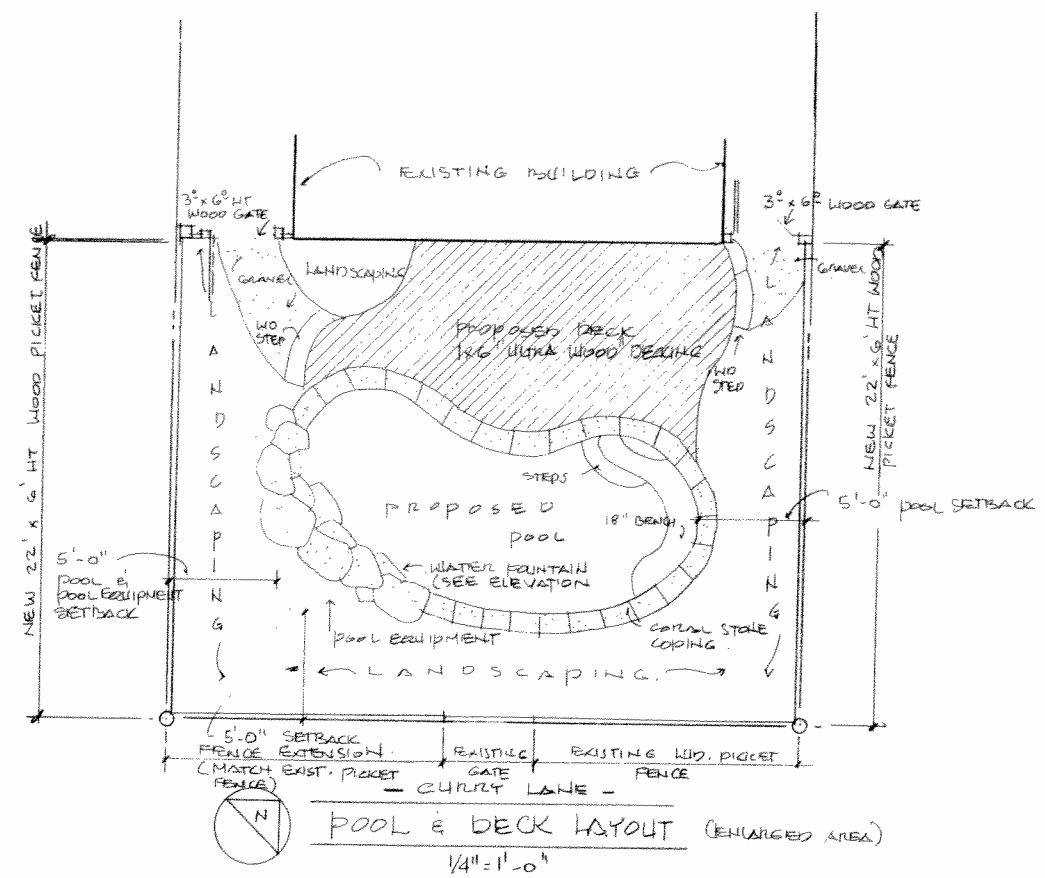 EXISTING BUILDING
3⁰ x 6⁰ HT
WOOD GATE
3⁰ x 6⁰ WOOD GATE
GRAVEL
LANDSCAPING
GRAVEL
WD
STEP
PROPOSED DECK
1x6 ULTRA WOOD DECKING
WD
STEP
NEW 22' x 6' HT WOOD PICKET FENCE
LANDSCAPING
LANDSCAPING
NEW 22' x 6' HT WOOD
PICKET FENCE
STEPS
PROPOSED
POOL
18" BENCH
5'-0" POOL SETBACK
5'-0"
POOL &
POOL EQUIPMENT
SETBACK
WATER FOUNTAIN
(SEE ELEVATION
POOL EQUIPMENT
CORAL STONE
COPING.
LANDSCAPING.
5'-0" SETBACK
FENCE EXTENSION.
(MATCH EXIST. PICKET
FENCE)
EXISTING
GATE
EXISTING WD. PICKET
FENCE
- CURRY LANE -
N
POOL & DECK LAYOUT (ENLARGED AREA)
1/4" = 1'-0"